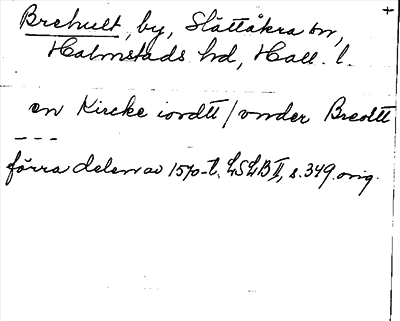 Brehult, by, Slättåkra sn,
Halmstads hd, Hall. l.
en Kircke iordtt/vnder Breoltt
---
förra delen av 1570-t. LSLB II, s. 349. orig.